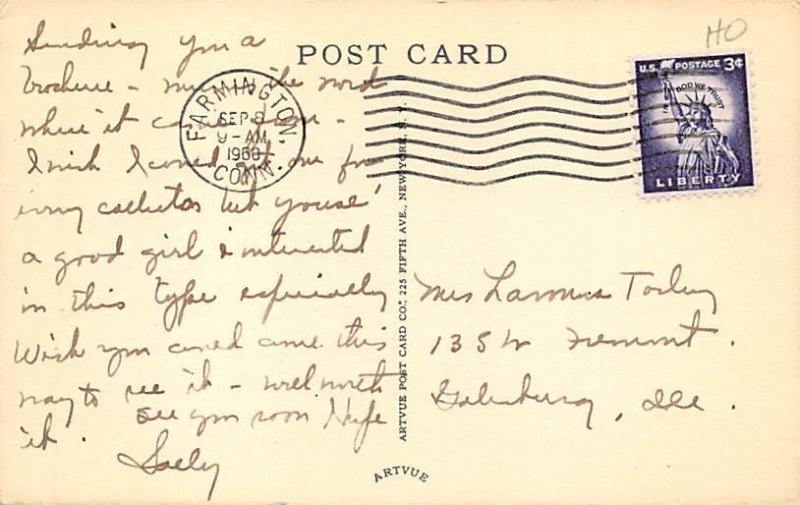 HO
POST CARD
U.S. POSTAGE 3¢
IN GOD WE TRUST
LIBERTY
FARMINGTON,
SEP 8
9 - AM
1960
CONN.
Sending you a
brochure - the word
where it
I wish I could get one for
my but you're
a good girl & interested
in this type especially
Wish you could come this
way to see it - well worth
it. See you soon Hope
Sally
Mrs Tooley
135 W Fremont.
Galesburg, Ill.
ARTVUE POST CARD CO., 225 FIFTH AVE., NEW YORK, N. Y.
ARTVUE